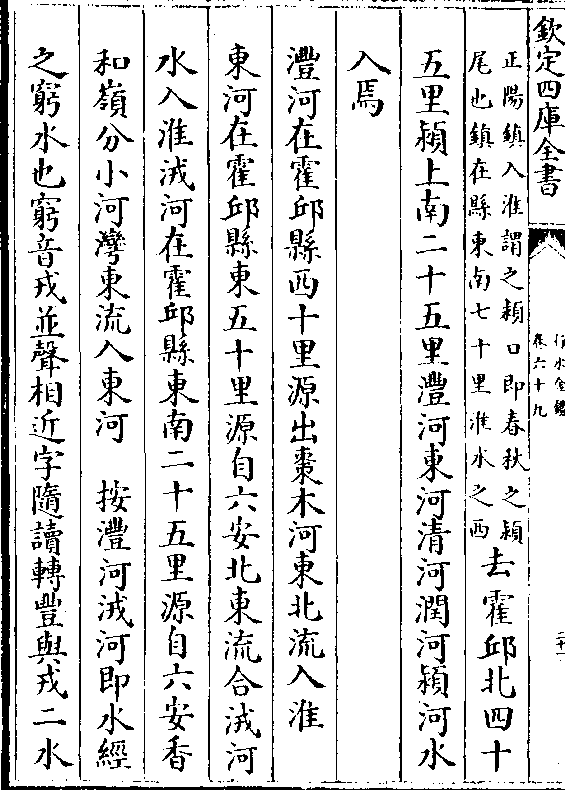 欽定四庫全書
行水金鑑
卷六十九
正陽鎮入淮謂之潁口即春秋之潁
尾也鎮在縣東南七十里淮水之西
去霍邱北四十
五里潁上南二十五里灃河東河清河潤河潁河水
入焉
灃河在霍邱縣西十里源出棗木河東北流入淮
東河在霍邱縣東五十里源自六安北東流合浅河
水入淮浅河在霍邱縣東南二十五里源自六安香
和嶺分小河灣東流入東河　按灃河浅河即水經
之窮水也窮音戎並聲相近字隨讀轉豐與戎二水